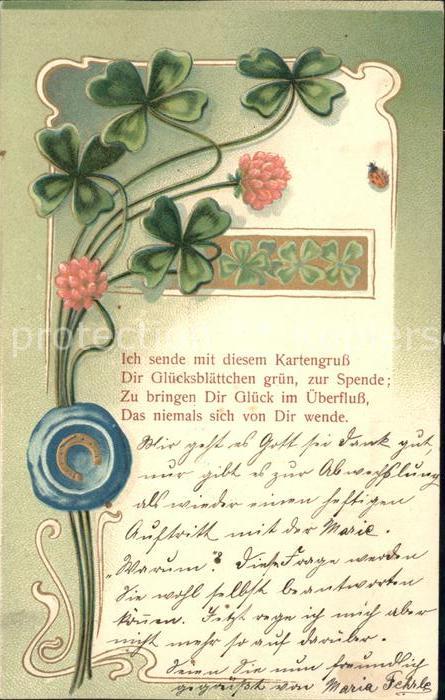 Ich sende mit diesem Kartengruß
Dir Glücksblättchen grün, zur Spende;
Zu bringen Dir Glück im Überfluß,
Das niemals sich von Dir wende.
Mir geht es Gott sei Dank gut,
nur gibt es zur Abwechslung
als wieder einen heftigen
Auftritt mit der Marie.
„Warum"? Diese Frage werden
Sie wohl selbst beantworten
können. Jetzt rege ich mich aber
nicht mehr so auf darüber.
Seien Sie nun freundlich
gegrüßt von Maria Fehrle